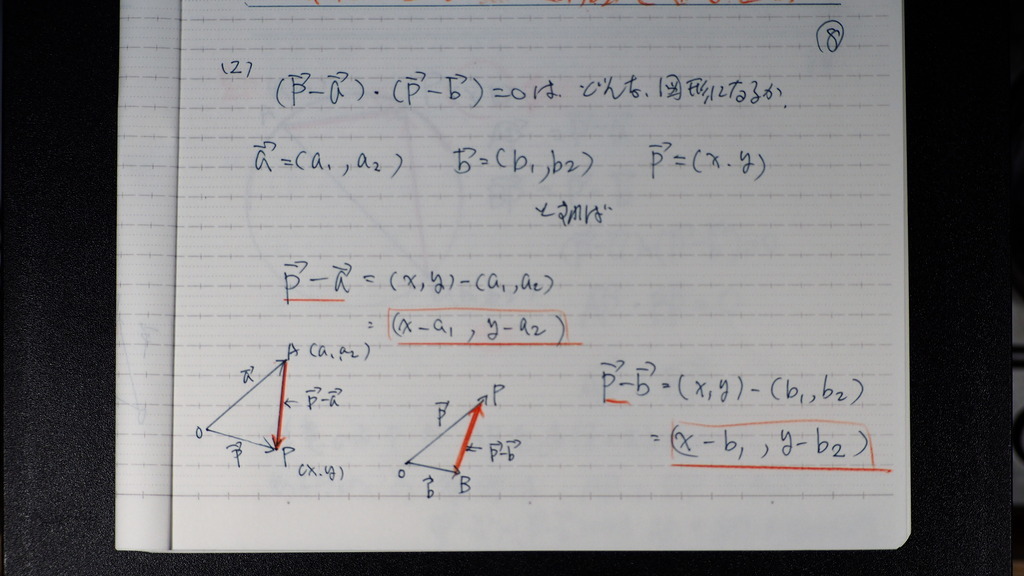 ⑧
(2)
(p⃗−a⃗)・(p⃗−b⃗)=0は、どんな図形になるか.
a⃗=(a₁,a₂) b⃗=(b₁,b₂) p⃗=(x.y)
とすれば
p⃗−a⃗ = (x,y)−(a₁,a₂)
= (x−a₁, y−a₂)
A(a₁,a₂)
a⃗
←p⃗−a⃗
O
p⃗
P
(x.y)
P
p⃗
←p⃗−b⃗
O
b⃗
B
p⃗−b⃗=(x,y)−(b₁,b₂)
=(x−b₁, y−b₂)